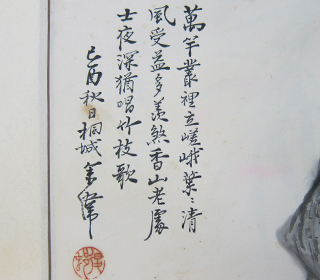 萬竿叢裡立嵯峨葉〻清
風受益多羨煞香山老處
士夜深猶唱竹枝歌
己酉秋日桐城